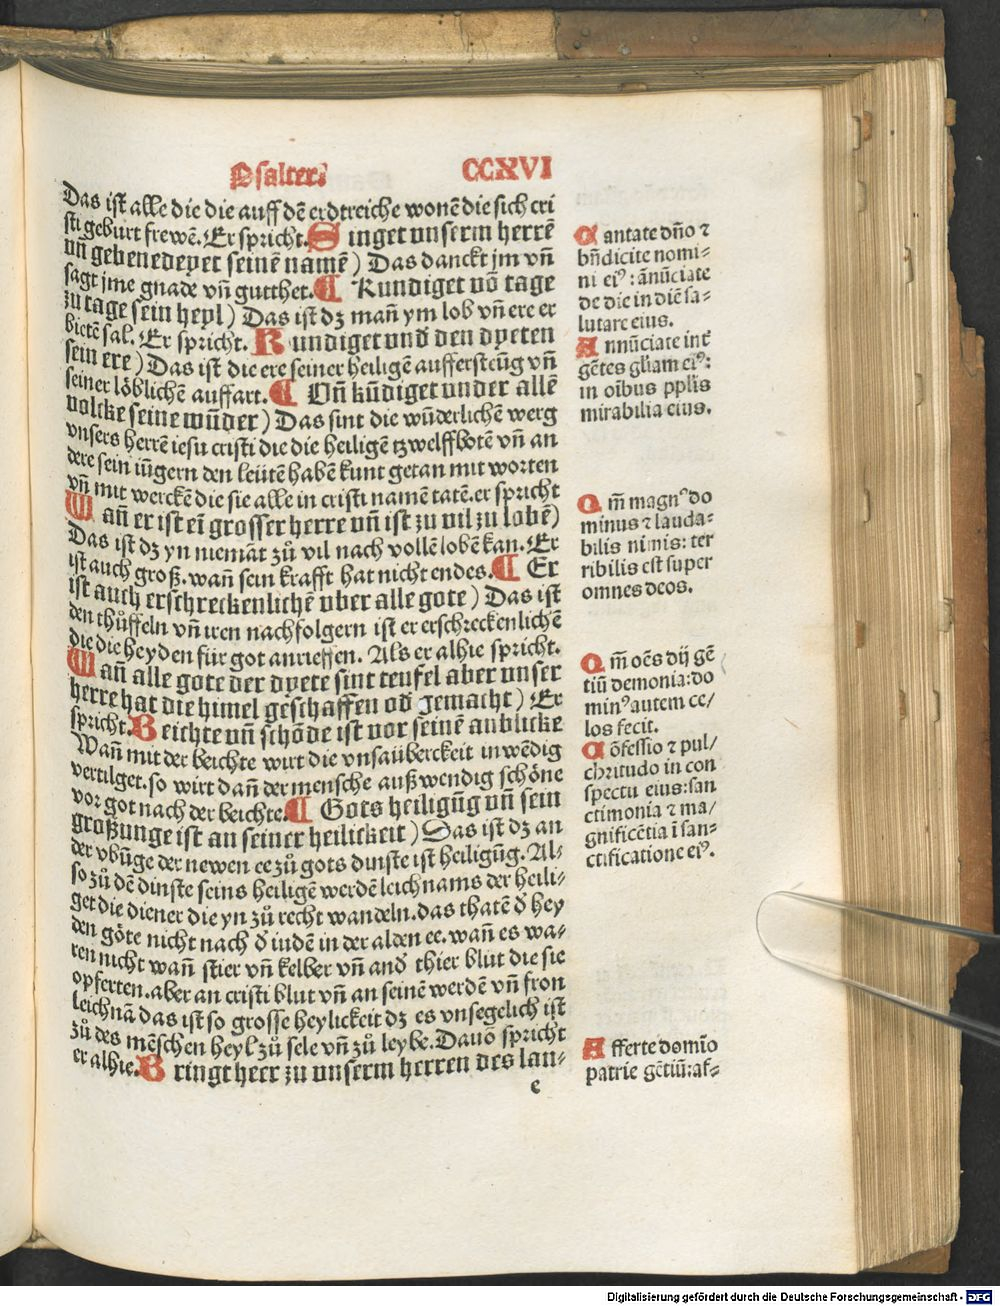 Psalter. CCXVI
Das ist alle die die auff dē erdtreiche wonē die sich cri
sti geburt frewē. Er spricht. Singet vnserm herrē
vñ gebenedeyet seinē namē) Das danckt jm vñ
sagt jme gnade vñ gutthet. ¶ Kundiget vō tage
zu tage sein heyl) Das ist dz mañ ym lob vñ ere er
bietē sal. Er spricht. Kundiget vnd den dyeten
sein ere) Das ist die ere seiner heiligē auffersteūg vñ
seiner löblichē auffart. ¶ Vñ kūdiget vnder allē
volcke seine wūder) Das sint die wūderlichē werg
vnsers herrē iesu cristi die die heiligē tzwelffbotē vñ an
dere sein iūgern den leütē habē kunt getan mit worten
vñ mit werckē die sie alle in cristi namē tatē. er spricht
Wañ er ist eī grosser herre vñ ist zu vil zu lobē)
Das ist dz yn niemāt zů vil nach vollē lobē kan. Er
ist auch groß. wañ sein krafft hat nicht endes. ¶ Er
ist auch erschreckenlichē vber alle gote) Das ist
den thůffeln vñ iren nachfolgern ist er erschreckenlichē
die die heyden für got anrieffen. Als er alhie spricht.
Wañ alle gote der dyete sint teufel aber vnser
herre hat die himel geschaffen od̄ gemacht) Er
spricht. Beichte vñ schōde ist vor seinē anblicke
Wañ mit der beichte wirt die vnsauberckeit inwēdig
vertilget. so wirt dañ der mensche außwendig schöne
vor got nach der beichte. ¶ Gots heiligūg vñ sein
großunge ist an seiner heilickeit) Das ist dz an
der vbūge der newen ee zů gots dinste ist heiligūg. Al⸗
so zů dē dinste seins heiligē werdē leichnams der heili⸗
get die diener die yn zů recht wandeln. das thatē d̄ hey
den göte nicht nach d̄ iudē in der alden ee. wañ es wa⸗
ren nicht wañ stier vñ kelber vñ and̄ thier blut die sie
opferten. aber an cristi blut vñ an seinē werdē vñ fron
leichnā das ist so grosse heylickeit dz es vnsegelich ist
zů des mēschen heyl zů sele vñ zů leybe. Dauō spricht
er alhie. Bringt heer zu vnserm herren des lau⸗
e
Cantate dño ⁊
bñdicite nomi⸗
ni eiꝰ: ānūciate
de die in diē sa⸗
lutare eius.
Annūciate int̄
gētes gl̄iam eiꝰ:
in oībus pplīs
mirabilia eius.
Qm̄ magnꝰ do
minus ⁊ lauda⸗
bilis nimis: ter
ribilis est super
omnes deos.
Qm̄ oēs dij gē
tiū demonia: do
minꝰ autem ce/
los fecit.
Cōfessio ⁊ pul/
chritudo in con
spectu eius: san
ctimonia ⁊ ma/
gnificētia ī san⸗
ctificatione eiꝰ.
Afferte domīo
patrie gētiū: af⸗
Digitalisierung gefördert durch die Deutsche Forschungsgemeinschaft - DFG